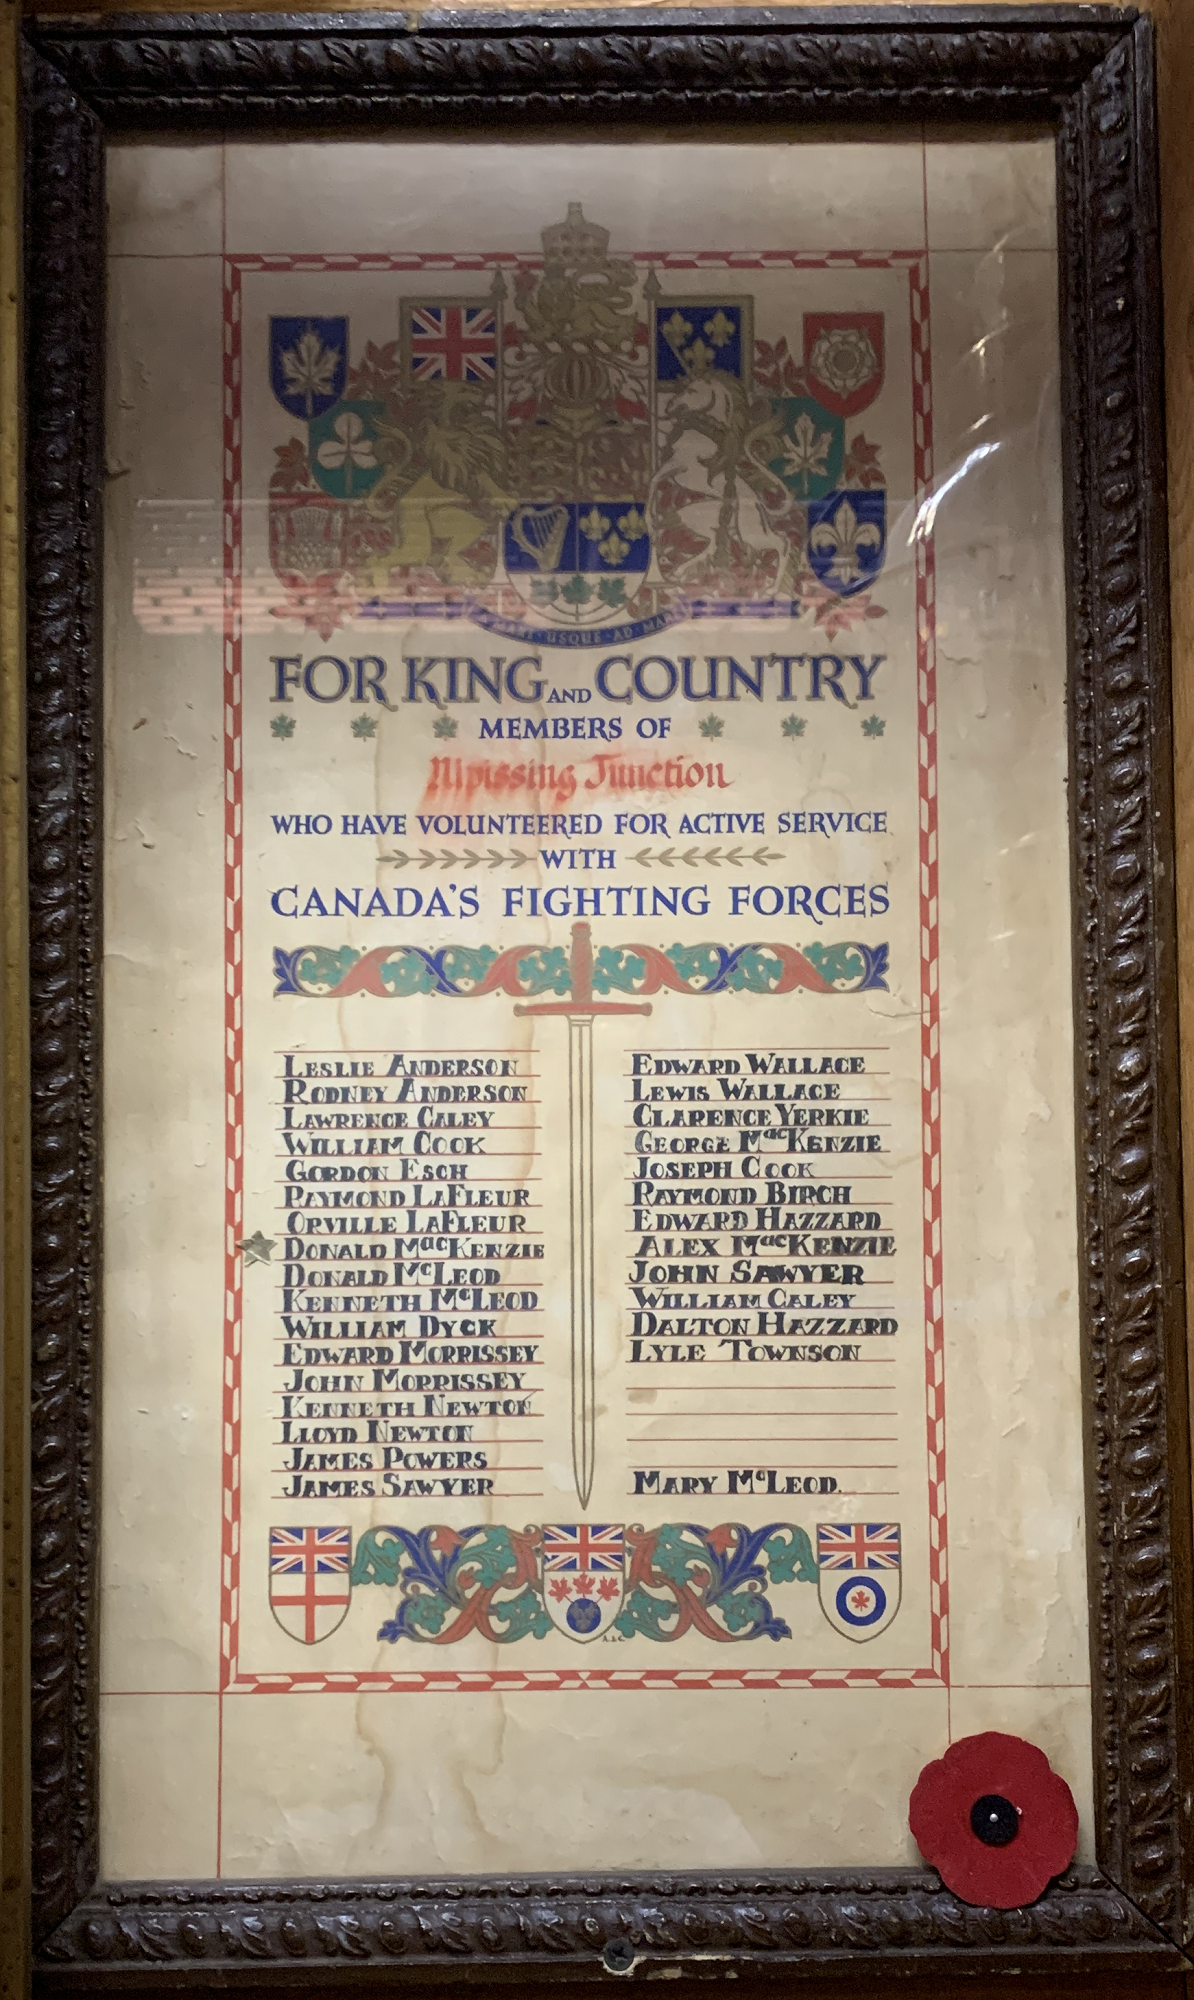 A MARI · USQUE · AD · MARE
FOR KING AND COUNTRY
MEMBERS OF
Nipissing Junction
WHO HAVE VOLUNTEERED FOR ACTIVE SERVICE
WITH
CANADA'S FIGHTING FORCES
LESLIE ANDERSON
RODNEY ANDERSON
LAWRENCE CALEY
WILLIAM COOK
GORDON ESCH
RAYMOND LAFLEUR
ORVILLE LAFLEUR
DONALD MacKENZIE
DONALD McLEOD
KENNETH McLEOD
WILLIAM DYCK
EDWARD MORRISSEY
JOHN MORRISSEY
KENNETH NEWTON
LLOYD NEWTON
JAMES POWERS
JAMES SAWYER
EDWARD WALLACE
LEWIS WALLACE
CLARENCE YERKIE
GEORGE MacKENZIE
JOSEPH COOK
RAYMOND BIRCH
EDWARD HAZZARD
ALEX MacKENZIE
JOHN SAWYER
WILLIAM CALEY
DALTON HAZZARD
LYLE TOWNSON
MARY McLEOD.